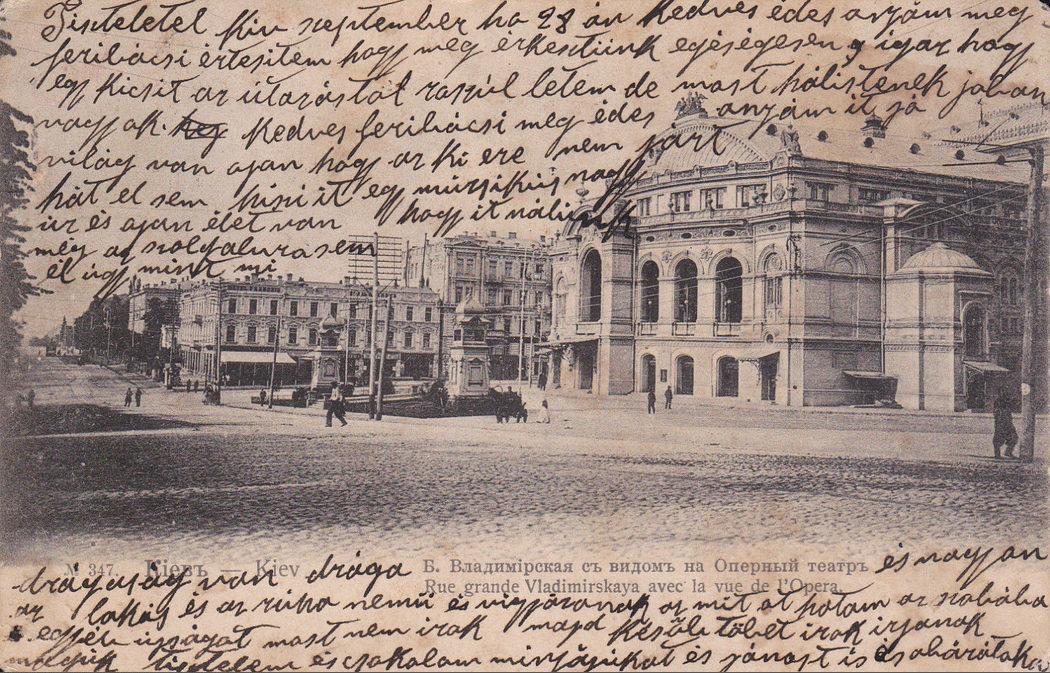 Tisteletel Kiv szeptember ho 28 án Kedves édes anyám meg
feribácsi értesitem hogy meg érkestünk egéségesen igaz hogy
egy kicsit az útazástol raszúl letem de most hálistenek joban
vagyok. Kedves feribácsi meg édes anyám it jó
világ van ajan hogy az ki ere nem jart
hát el sem hiszi it egy muzsikus nagy
úr és ajan élet van hogy it nálunk
még az szolgabirasem
él úgy mint mi
№ 347. Кіевъ — Kiev
Б. Владимірская съ видомъ на Оперный театръ
Rue grande Vladimirskaya avec la vue de l'Opera.
drágaság van drága és nagyan
az lakás és az ruha nemü és
egyéb ujságot most nem irok majd késöb töbet irok irjanak
tisztelem és csokalom mindnyájukat és jánost is és abarátaka